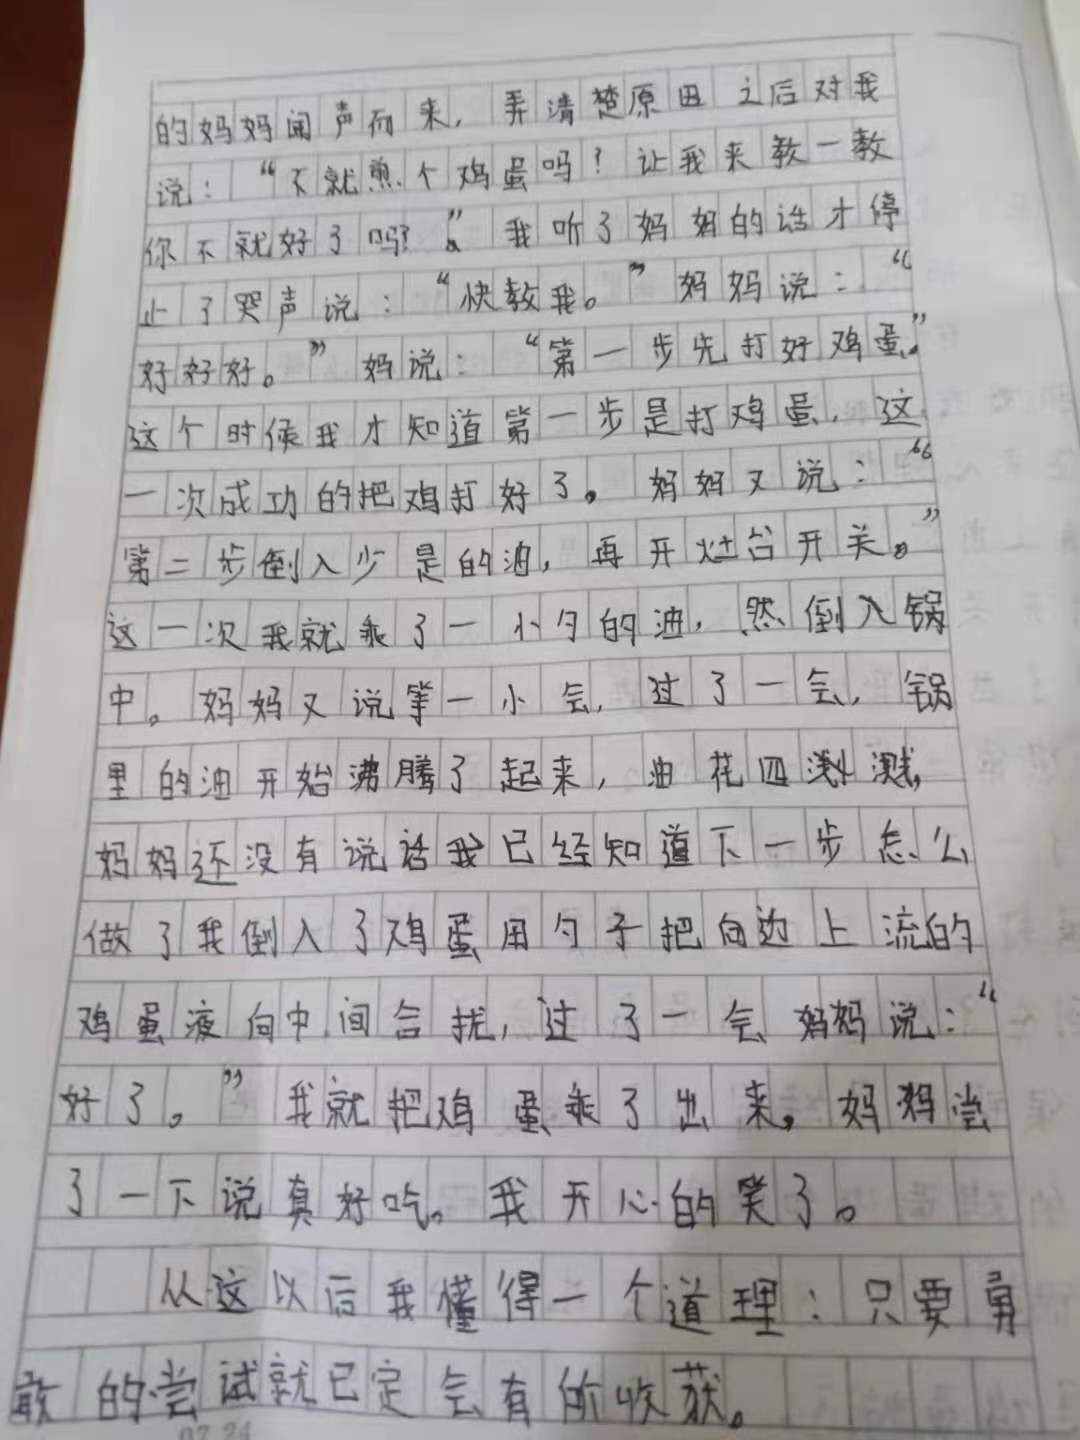 的妈妈闻声而来，弄清楚原因之后对我
说：“不就煎个鸡蛋吗？让我来教一教
你不就好了吗？”。我听了妈妈的话才停
止了哭声说：“快教我。”妈妈说：“
好好好。”妈说：“第一步先打好鸡蛋。”
这个时候我才知道第一步是打鸡蛋，这
一次成功的把鸡打好了。妈妈又说：“
第二步倒入少是的油，再开灶台开关。”
这一次我就乘了一小勺的油，然倒入锅
中。妈妈又说等一小会，过了一会，锅
里的油开始沸腾了起来，油花四溅溅，
妈妈还没有说话我已经知道下一步怎么
做了我倒入了鸡蛋用勺子把向边上流的
鸡蛋液向中间合拢，过了一会妈妈说：“
好了。”我就把鸡蛋乘了出来，妈妈尝
了一下说真好吃。我开心的笑了。
从这以后我懂得一个道理：只要勇
敢的尝试就已定会有所收获。
07.24